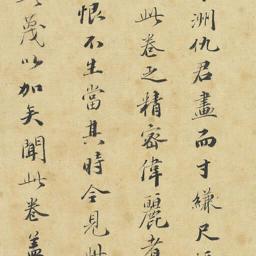 洲仇君畫而寸縑尺
此卷之精密偉麗者
恨不生當其時今見此
茂以加矣聞此卷蓋